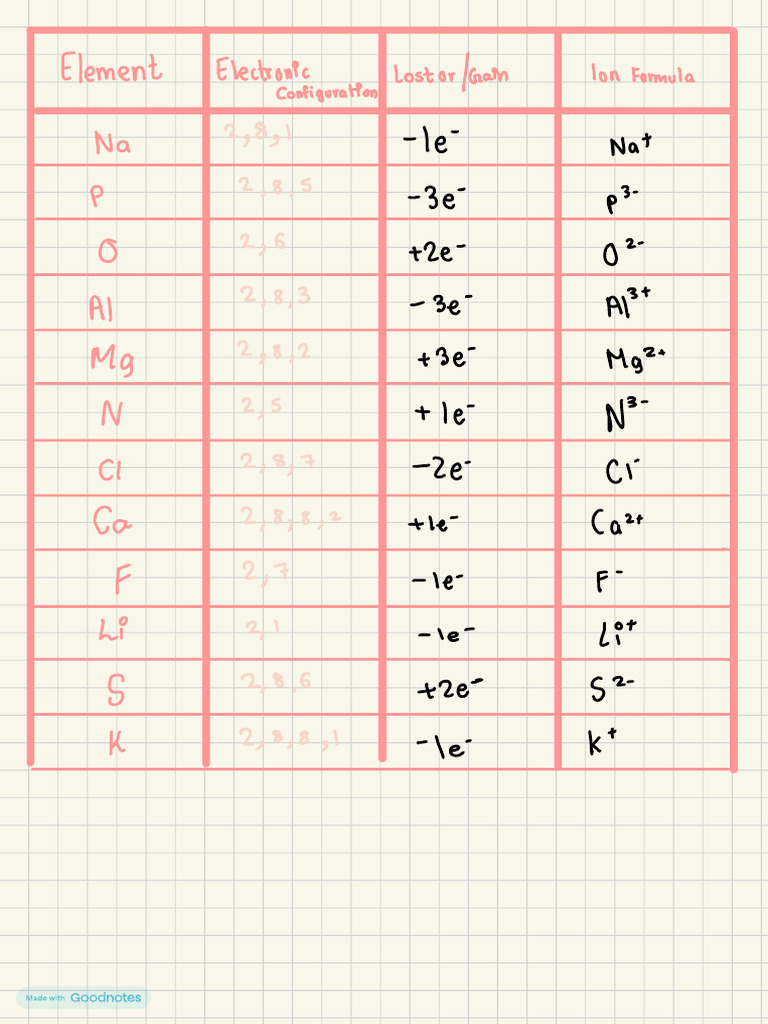 Element Electronic Configuration Lost or / Gain Ion Formula
Na 2,8,1 -1e⁻ Na⁺
P 2,8,5 -3e⁻ P³⁻
O 2,6 +2e⁻ O²⁻
Al 2,8,3 -3e⁻ Al³⁺
Mg 2,8,2 +3e⁻ Mg²⁺
N 2,5 +1e⁻ N³⁻
Cl 2,8,7 -2e⁻ Cl⁻
Ca 2,8,8,2 +1e⁻ Ca²⁺
F 2,7 -1e⁻ F⁻
Li 2,1 -1e⁻ Li⁺
S 2,8,6 +2e⁻ S²⁻
K 2,8,8,1 -1e⁻ K⁺
Made with Goodnotes